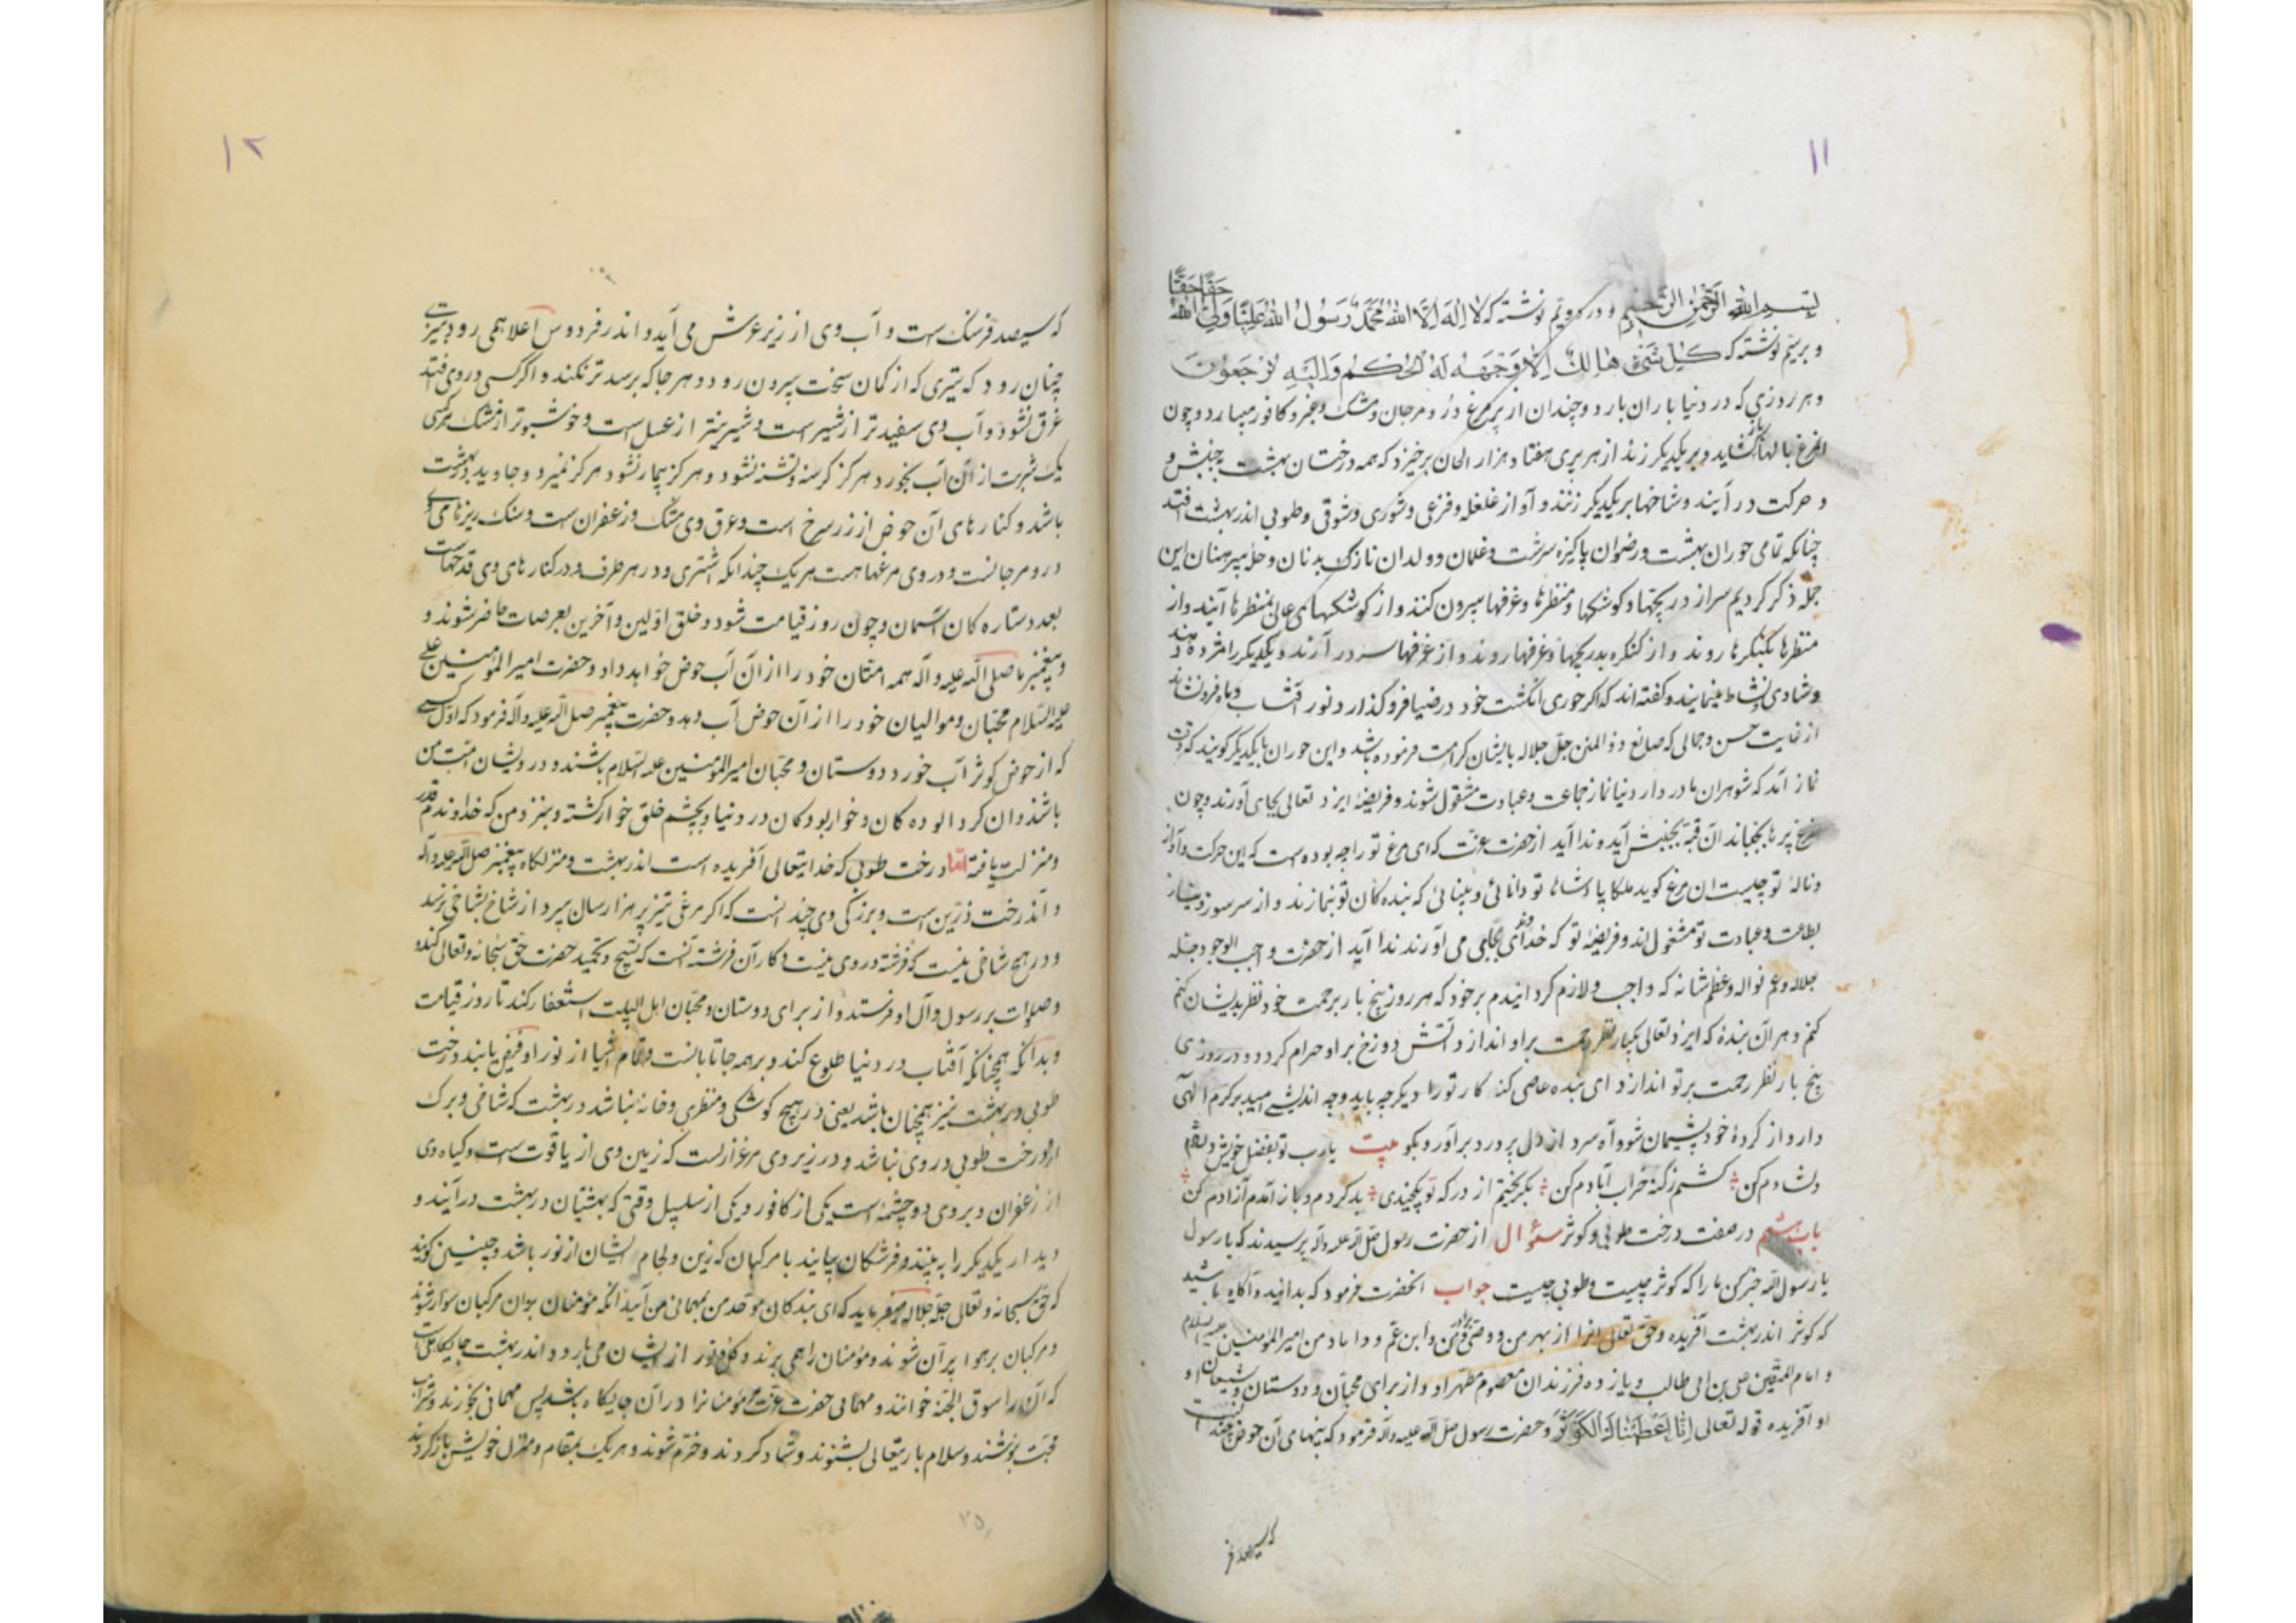 ۱۱
بِسْمِ اللّٰهِ الرَّحْمٰنِ الرَّحِیْمِ و در دویّم نوشته که لا اِلٰهَ اِلَّا اللّٰهُ مُحَمَّدٌ رَسُولُ اللّٰهِ عَلِیًّا وَلِیُّ اللّٰهِ حَقًّا حَقًّا
و بر سیّم نوشته که کُلُّ شَیْءٍ هَالِكٌ اِلَّا وَجْهَهُ لَهُ الْحُکْمُ وَاِلَیْهِ تُرْجَعُونَ
و هر روزی که در دنیا باران بارد دوچندان از پر مرغ درّ و مرجان و مشک و عنبر و کافور میبارد و چون
آنمرغ بالها بکشاید و بر یکدیکر زند از هر پری هفتاد هزار الحان برخیزد که همه درختان بهشت بجنبش و
و حرکت در آیند و شاخها بر یکدیکر زنند و آواز غلغله و فزعی و شوری و شوقی و طوبی اندر بهشت افتد
چنانکه تمامی حوران بهشت و رضوان پاکیزه سرشت و غلمان و ولدان نازک بدنان و حله پیرهنان این
جمله ذکر کردیم سر از دریچها و کوشکها و منظرها و غرفها بیرون کنند و از کوشکهای عالی بمنظرها آیند و از
منظرها بکنکرها روند و از کنکره بدریچها و غرفها روند و از غرفها سر در آرند و یکدیکر را مژده دهند
و شادی و نشاط مینمایند و کفته اند که اکر حوری انکشت خود در ضیا فرو کذارد نور آفتاب و ماه فرونشاند
از غایت حسن و جمالی که صانع ذو المنن جلّ جلاله بایشان کرامت فرموده باشد و این حوران با یکدیکر کویند که وقت
نماز آمد که شوهران ما در دار دنیا نماز جماعت و عبادت مشغول شوند و فریضهٔ ایزد تعالی بجای آورند و چون
مرغ پرها بجنباند آن قبّه بجنبش آید و ندا آید از حضرت عزّت که ای مرغ تو را چه بوده است که این حرکت و آواز
و نالهٔ تو چیست آن مرغ کوید ملکا پادشاها تو دانائی و بینائی که بنده کان تو بنمازند و از سر سوز و نیاز
بطاعت و عبادت تو مشغول اند و فریضهٔ تو که خدائی بجای می آورند ندا آید از حضرت واجب الوجود جلّه
جلاله و عمّ نواله و عظم شانه که واجب و لازم کردانیدم بر خود که هر روز پنج بار برحمت خود نظر بدیشان کنم
کنم و هر آن بندهٔ که ایزد تعالی یکبار نظر رحمت بر او اندازد آتش دوزخ بر او حرام کردد و در روزی
پنج بار نظر رحمت بر تو اندازد ای بنده عاصی کنه کار تو را دیکر چه باید و چه اندیشه امید بر کرم الهی
دار و از کردهٔ خود پشیمان شو و آه سرد از دل پر درد برآور و بکو بیت یا رب تو بفضل خویش
دلشادم کن کشتم ز کنه خراب آبادم کن بکریختم از درکه تو بد کردم و باز آمدم آزادم کن
باب هشتم در صفت درخت طوبی و کوثر سئوال از حضرت رسول صلی الله علیه و آله پرسیدند که یا رسول
یا رسول الله خبر کن ما را که کوثر چیست و طوبی چیست جواب آنحضرت فرمود که بدانید و آکاه باشید
که کوثر اندر بهشت آفریده و حق تعالی آنرا از بهر من و وصی من و ابن عم و داماد من امیر المؤمنین علیه السلام
و امام المتقین علی بن ابی طالب و یازده فرزندان معصوم مطهر او و از برای محبّان و دوستان و شیعان او
او آفریده قوله تعالی اِنَّا اَعْطَیْنَاكَ الْکَوْثَرَ و حضرت رسول صلی الله علیه و آله فرمود که پهنای آن حوض چندانست
که سیصد فر
۱۲
که سیصد فرسنک است و آب وی از زیر عرش می آید و اندر فردوس اعلا همی رود بتیزی
چنان رود که تیری که از کمان سخت بیرون رود و هر جا که برسد تر نکند و اکر کسی در وی افتد
غرق نشود و آب وی سفیدتر از شیر است و شیرینتر از عسل است و خوشبوتر از مشک هر کسی
یک شربت از آن آب بخورد هرکز کرسنه و تشنه نشود و هرکز بیمار نشود هرکز نمیرد و جاوید در بهشت
باشد و کنارهای آن حوض از زر سرخ است و عرق وی مشک و زعفران است و سنک ریزهای او
در و مرجانست و در وی مرغها هست هر یک چندانکه اشتری و در هر طرف و در کنارهای وی قدحهاست
بعدد ستاره کان آسمان و چون روز قیامت شود و خلق اوّلین و آخرین بعرصات حاضر شوند و
و پیغمبر ما صلی الله علیه و آله همه امتان خود را از آن آب حوض خواهد داد و حضرت امیر المؤمنین علی
علیه السّلام محبّان و موالیان خود را از آن حوض آب دهد و حضرت پیغمبر صلی الله علیه و آله فرمود که اوّل کسی
که از حوض کوثر آب خورد دوستان و محبّان امیر المؤمنین علیه السّلام باشند و درویشان امّت من
باشند و آن کرد آلوده کان و خوار بوده کان در دنیا و بچشم خلق خوار کشته و بنزد من که خداوندم قدر
و منزلت یافته امّا درخت طوبی که خدایتعالی آفریده است اندر بهشت و منزلکاه پیغمبر صلی الله علیه و آله
و آندرخت زرّین است و بزرکی وی چندانست که اکر مرغی تیز پر هزار سال بپرد از شاخ بشاخی نرسد
و در هیچ شاخی نیست که فرشته در وی نیست و کار آن فرشته آنست که تسبیح و تحمید حضرت حق سبحانه و تعالی کند و
و صلوات بر رسول و آل او فرستد و از برای دوستان و محبّان اهل البیت استغفار کند تا روز قیامت
و بدانکه همچنانکه آفتاب در دنیا طلوع کند و بر همه جا تابانست و تمام اشیا از نور او فیض یابند درخت
طوبی در بهشت نیز همچنان باشد یعنی در هیچ کوشکی و منظری و خانهٔ نباشد در بهشت که شاخی و برک
از درخت طوبی در وی نباشد و در زیر وی مرغزاریست که زمین وی از یاقوت است و کیاه وی
از زعفران و بر وی دو چشمه است یکی از کافور و یکی از سلسبیل وقتی که بهشتیان در بهشت در آیند و
دیدار یکدیکر را به بینند و فرشتکان بیایند با مرکبان که زین و لجام ایشان از نور باشد و چنین کویند
که حق سبحانه و تعالی جلّ جلاله میفرماید که ای بندکان موحّد من بمهمانی من آئید آنکه مؤمنان بدان مرکبان سوار شوند
و مرکبان بر هوا پرّان شوند و مؤمنان را همی برند و نور از ایشان می بارد و اندر بهشت جایکاهی است
که آن را سوق الجنّه خوانند و مهمانی حضرت عزّت مؤمنانرا در آن جایکاه باشد پس مهمانی بخورند و شراب
محبّت بنوشند و سلام باریتعالی بشنوند و شاد کردند و خرّم شوند و هر یک بمقام و منزل خویش باز کردند